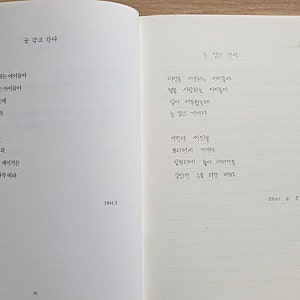 눈 감고 간다
하는 아이들아
는 아이들아
데
라.
라.
채이거든
떠라.
1941.5
눈 감고 간다
태양을 사모하는 아이들아
별을 사랑하는 아이들아
밤이 어두웠는데
눈 감고 가거라
가진바 씨앗을
뿌리면서 가거라
발뿌리에 돌이 채이거든
감았던 눈을 와짝 떠라.